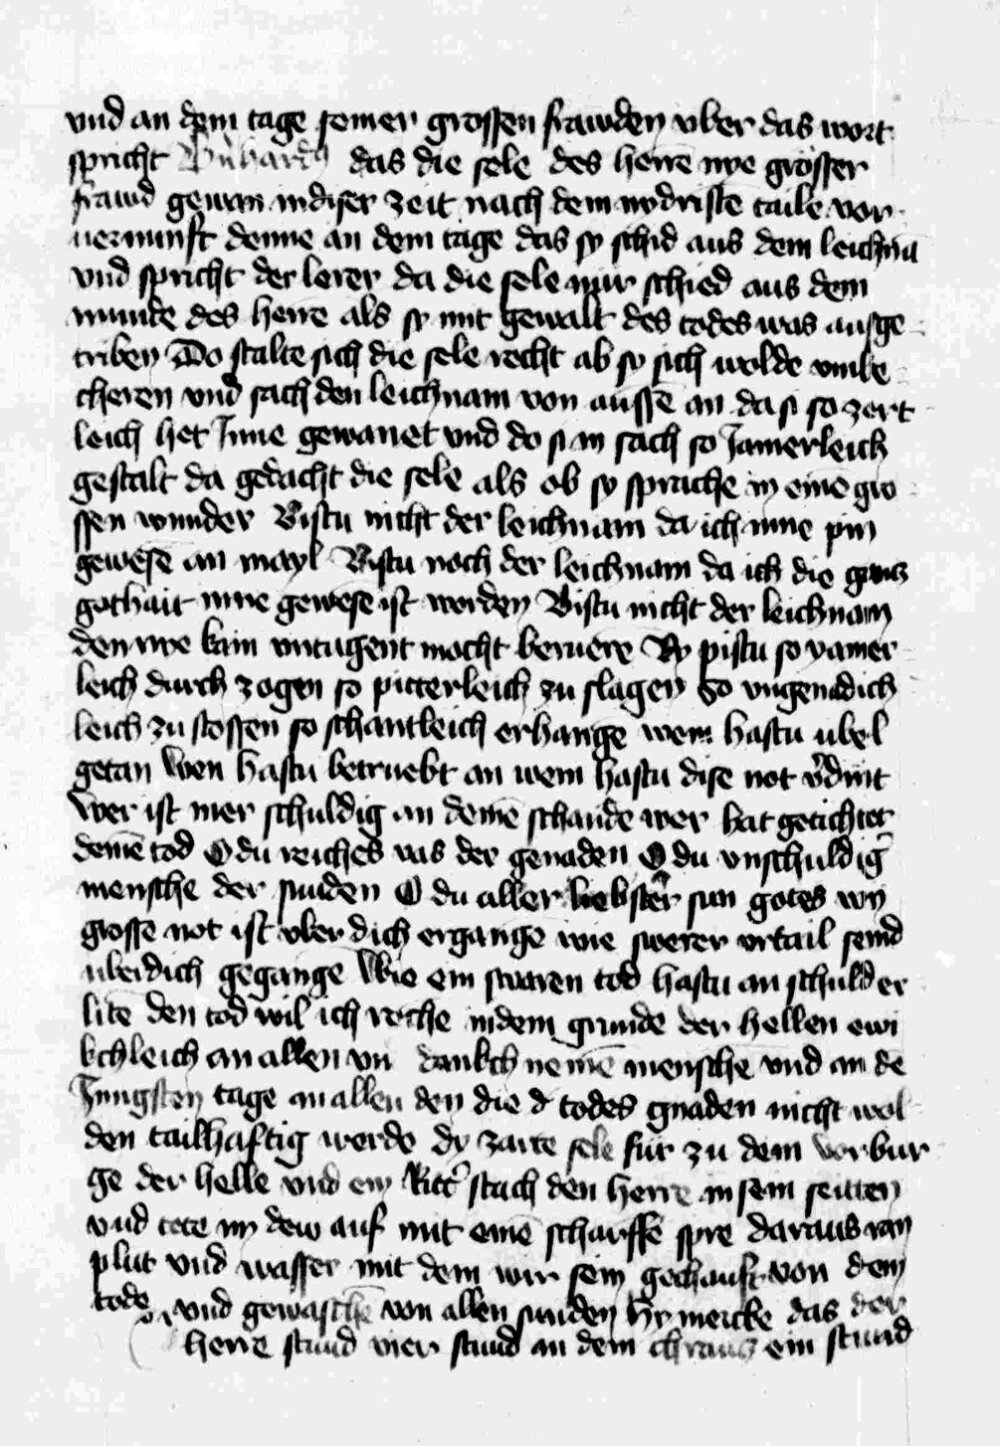 vnd an dem tage seiner grossen frawden vber das wort
spricht das die sele des herre nye grösser
frawd gewan in diser zeit nach dem nydriste taile vor
uernunft denne an dem tage das sy schid aus dem leichnā
vnd spricht der lerer da die sele nur schied aus dem
munde des herre als sy mit gewalt des todes was ausge
triben Do stalte sich die sele recht ab sy sich wolde vmbe
cheren vnd sach den leichnam von aussē an da si so zert
leich het Inne gewanet vnd do si in sach so Jamerleich
gestalt da gedacht die sele als ob sy sprache in einē gro
ssen wunder Bistu nicht der leichnam da ich inne pin
gewesē an mayl Bistu noch der leichnam da ich die gancz
gothait inne gewese ist worden Bistu nicht der leichnam
den nye kain vntugent mocht beruerē Wy pistu so yamer
leich durch zogen so pitterleich zu slagen So vngenadich
leich zu stossen so schantleich erhangē wem hastu ubel
getan Wen hastu betruebt an wem hastu dise not v̄dint
Wer ist mer schuldig an deinē schande wer hat getichtet
deinē tod O du reiches vas der genaden O du vnschuldiḡ
mensche der sunden O du aller liebster sun gotes wy
grosse not ist vber dich ergangē wie swerer vrtail seind
uber dich gegangē Wie ein swaren tod hastu an schuld er
litē den tod wil ich reche in dem grunde der hellen ewi
kchleich an allen vn dankch nemē mensche vnd an de
Jungsten tage an allen den die d todes gnaden nicht wol
den tailhaftig werde dy zarte sele fur zu dem vorbur
ge der helle vnd ein Ritt̄ stach den herre in sein seitten
vnd tete im dew auf mit einē scharffē spre daraus ran
plut vnd wasser mit dem wir sein gechauft von dem
tode vnd gewaschē von allen sunden Hy mercke das der
herre stund vier stund an dem chraucz ein stund